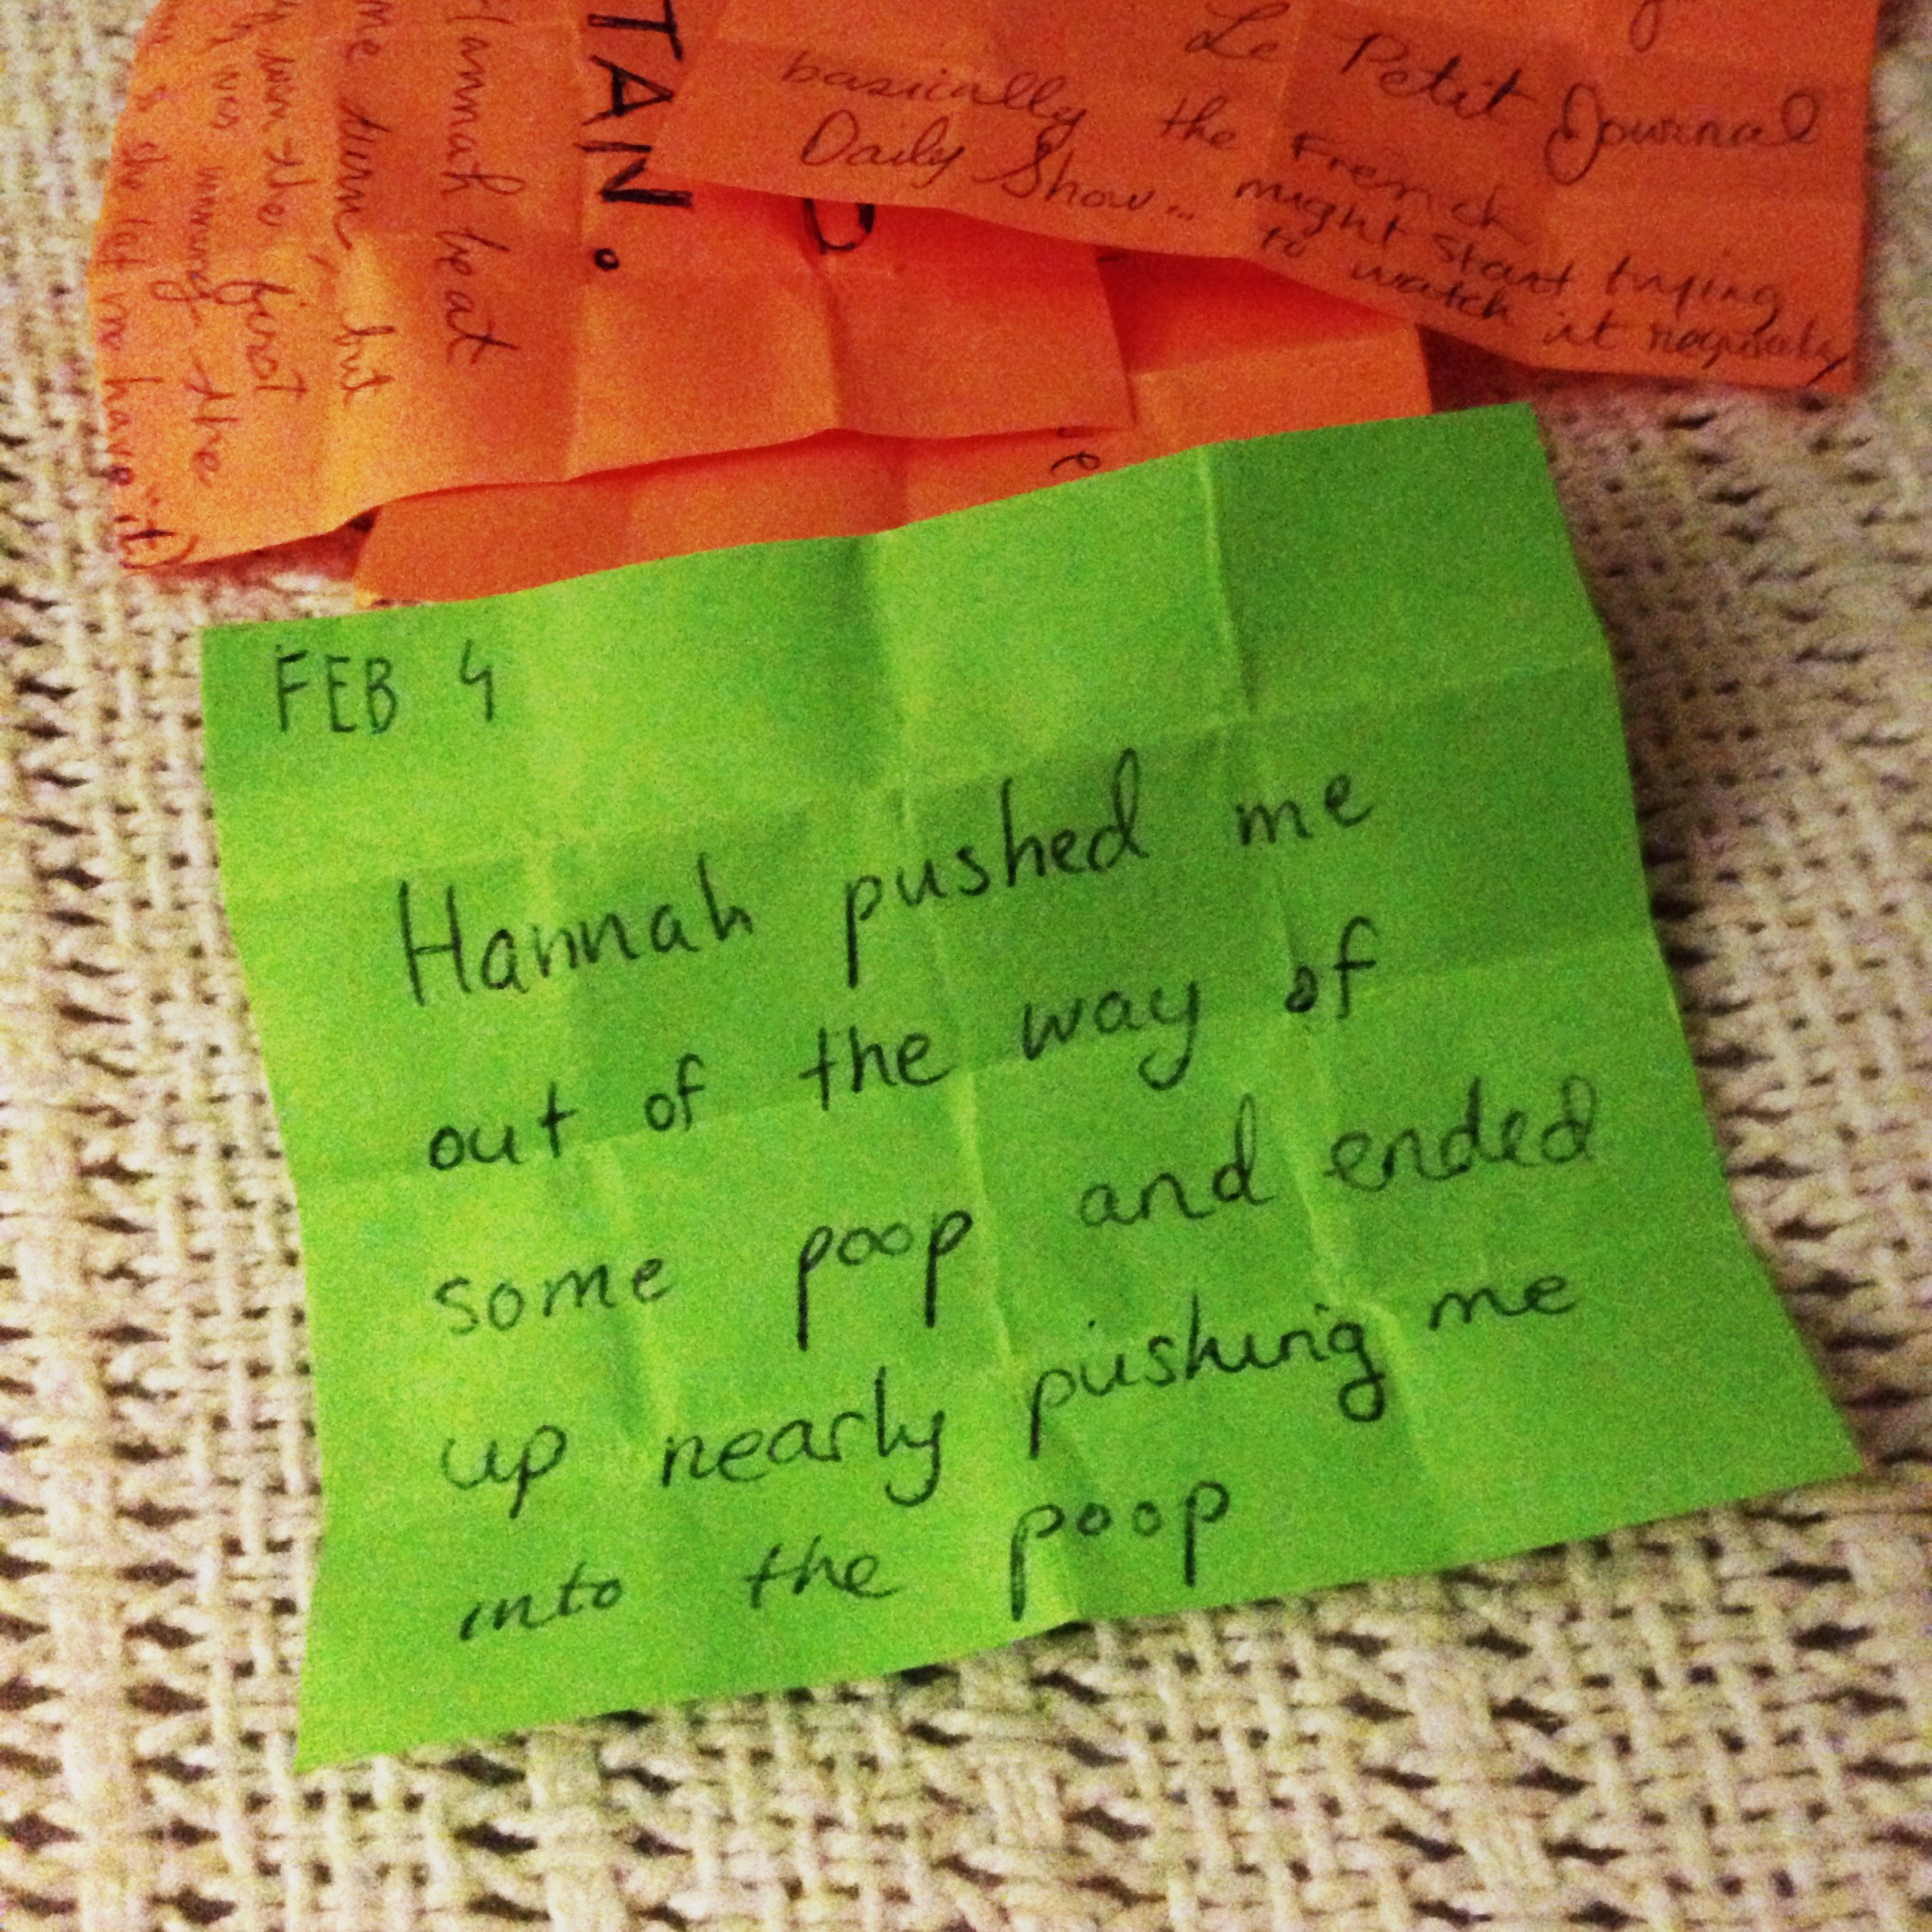 Le Petit Journal
basically the French
Daily Show... might start trying
to watch it regularly
TAN.
Hannah beat
me turn, but
win the first
winning the
she let me have it)
FEB 4
Hannah pushed me
out of the way of
some poop and ended
up nearly pushing me
into the poop